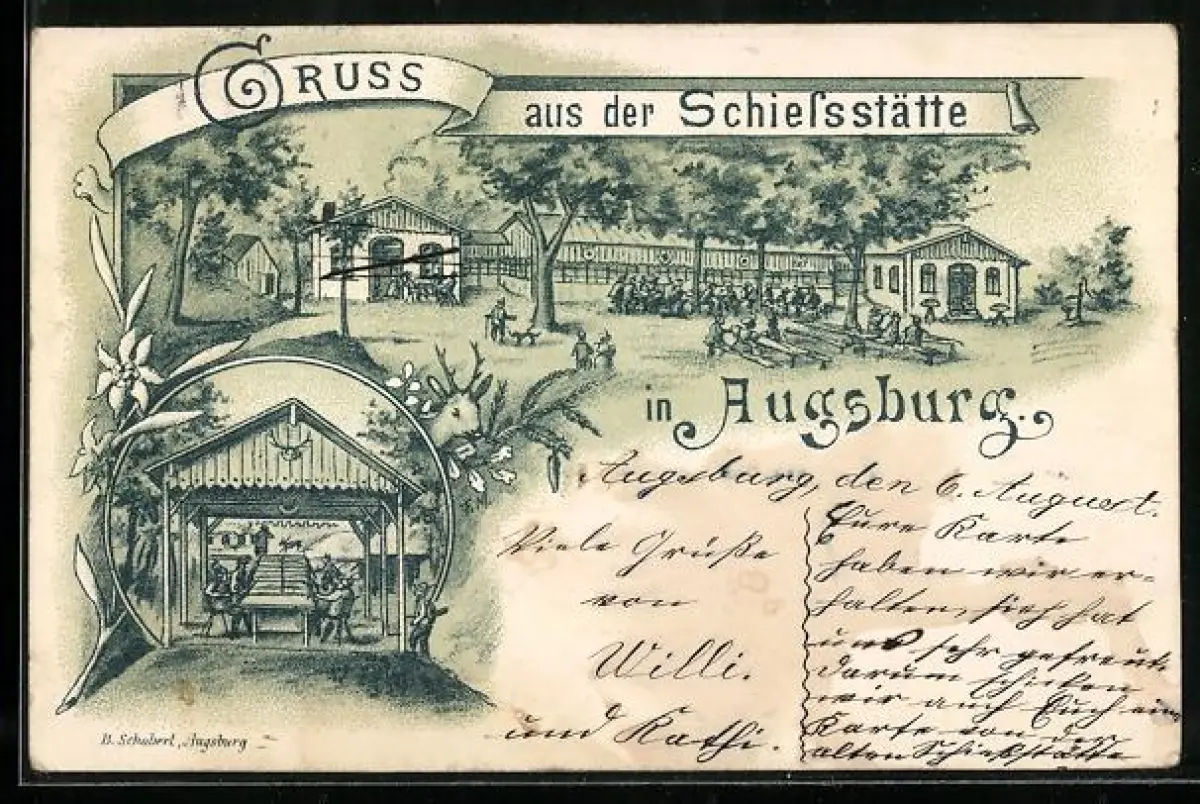 GRUSS
aus der Schiefsstätte
in Augsburg.
Augsburg, den 6. August.
Viele Grüße
von
Willi.
und Kathi.
Eure Karte
haben wir er-
halten, hat
uns sehr gefreut.
Darum schicken
wir auch Euch eine
Karte von der
alten Schießstätte
B. Schubert, Augsburg